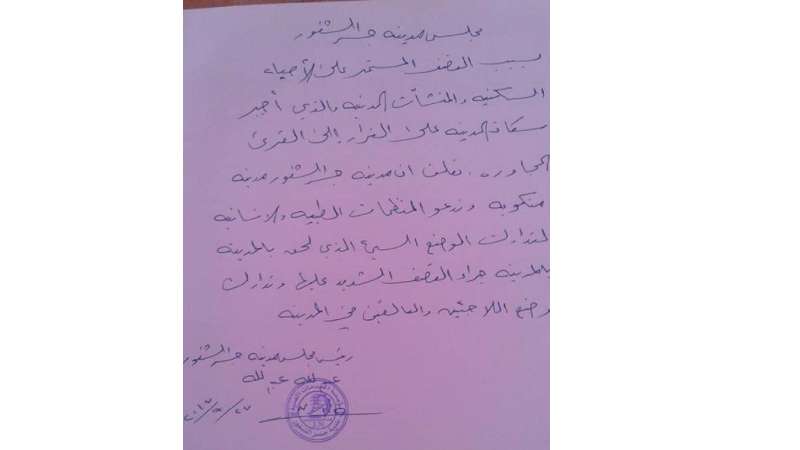 مجلس مدينة جسر الشغور
بسبب القصف المستمر على الأحياء
السكنيه والمنشآت المدنيه والذي أجبر
سكان المدينه على الفرار إلى القرى
المجاوره . نعلن ان مدينه جسر الشغور مدينه
منكوبه وندعو المنظمات الطبيه والانسانيه
لتدارك الوضع السيئ الذي لحق بالمدينه
بالمدينه جراء القصف الشديد عليها وتدارك
وضع اللاجئين والعالقين في المدينه
رئيس مجلس مدينه جسر الشغور
عبدالله عبدالله